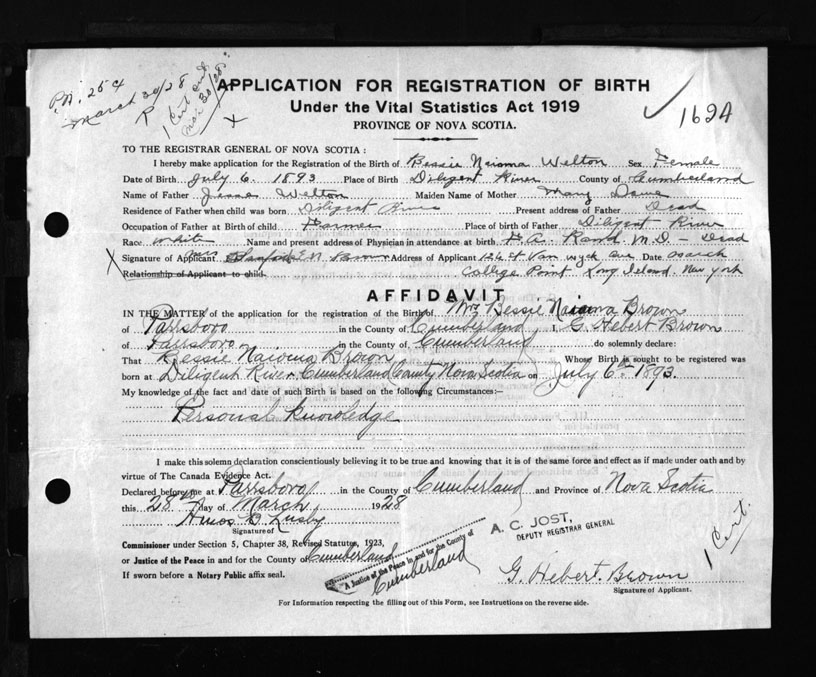 P.N. 254
March 30/28
1 Cert and
Mar 30/28
X
APPLICATION FOR REGISTRATION OF BIRTH
Under the Vital Statistics Act 1919
PROVINCE OF NOVA SCOTIA.
✓ 1624
TO THE REGISTRAR GENERAL OF NOVA SCOTIA :
I hereby make application for the Registration of the Birth of Bessie Naioma Welton Sex Female
Date of Birth July 6. 1893 Place of Birth Diligent River County of Cumberland
Name of Father Jesse Welton Maiden Name of Mother Mary Dawe
Residence of Father when child was born Diligent River Present address of Father Dead
Occupation of Father at Birth of child Farmer Place of birth of Father Diligent River
Race White Name and present address of Physician in attendance at birth F. A. Rand M.D - Dead
X Signature of Applicant Mrs E N. Brown Address of Applicant 124 St Van Wyck Ave Date March
Relationship of Applicant to child College Point Long Island, New York
AFFIDAVIT
IN THE MATTER of the application for the registration of the Birth of Mrs Bessie Naioma Brown
of Parrsboro in the County of Cumberland I, G. Hebert Brown
of Parrsboro in the County of Cumberland do solemnly declare:
That Bessie Naioma Brown Whose Birth is sought to be registered was
born at Diligent River Cumberland County Nova Scotia on July 6th 1893.
My knowledge of the fact and date of such Birth is based on the following Circumstances:—
Personal Knowledge
I make this solemn declaration conscientiously believing it to be true and knowing that it is of the same force and effect as if made under oath and by
virtue of The Canada Evidence Act.
Declared before me at Parrsboro in the County of Cumberland and Province of Nova Scotia
this 28th day of March 1928
Amos B Lusby
Signature of
Commissioner under Section 5, Chapter 38, Revised Statutes, 1923,
or Justice of the Peace in and for the County of Cumberland
If sworn before a Notary Public affix seal.
A Justice of the Peace in and for the County of
Cumberland
A. C. JOST,
DEPUTY REGISTRAR GENERAL
1 Cert.
G. Hebert. Brown
Signature of Applicant.
For Information respecting the filling out of this Form, see Instructions on the reverse side.